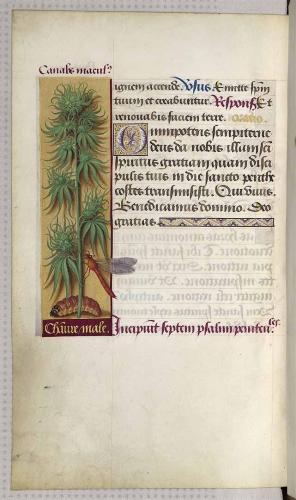 Canabs macus?
ignem accende. Vosus Emitte spiri
tuum et creabuntur. Respons Et
renovabis faciem terre. Oratio
Omnipotens sempiterne
deus da nobis illam sancti
spiritus gratiam quam disci
pulis tuis in die sancto penthe
costes transmisisti. Qui vivis.
Benedicamus domino. Deo
gratias.
Chanvre male.
Incipiunt septem psalmi peniten
les